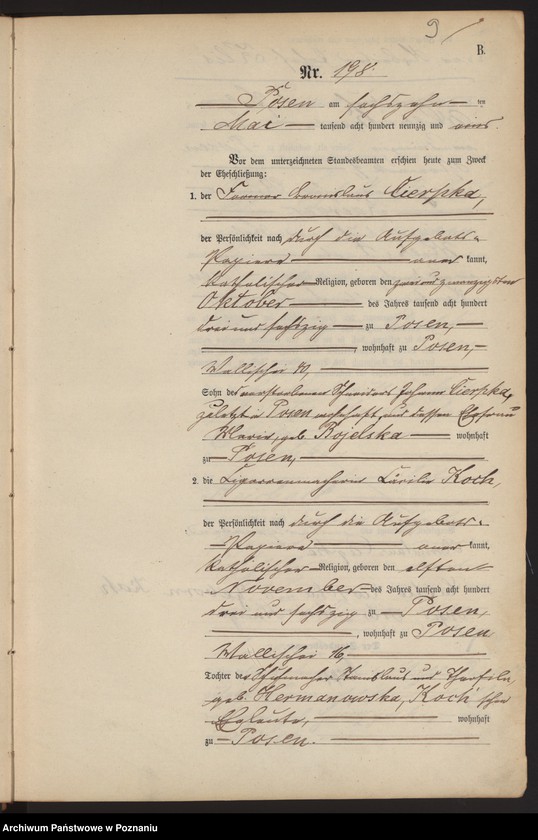 9
B.
Nr. 198.
Posen am sechszehn ten
Mai tausend acht hundert neunzig und eins.
Vor dem unterzeichneten Standesbeamten erschien heute zum Zweck
der Eheschließung:
1. der Former Bronislaus Cierpka,
der Persönlichkeit nach durch die Aufgebots-
Papiere aner kannt,
katholischer Religion, geboren den zwei und zwanzigsten
Oktober des Jahres tausend acht hundert
drei und sechszig zu Posen,
, wohnhaft zu Posen,
Wallischei 10,
Sohn des verstorbenen Schneiders Johann Cierpka,
zuletzt in Posen wohnhaft, und dessen Ehefrau
Maria, geb. Rojelska wohnhaft
zu Posen,
2. die Cigarrenmacherin Cäcilie Koch,
der Persönlichkeit nach durch die Aufgebots-
Papiere aner kannt,
katholischer Religion, geboren den elften
November des Jahres tausend acht hundert
drei und sechszig zu Posen,
, wohnhaft zu Posen
Wallischei 16,
Tochter der Stanislaus und
geb. Hermanowska, Koch'schen
Eheleute, wohnhaft
zu Posen.
Archiwum Państwowe w Poznaniu